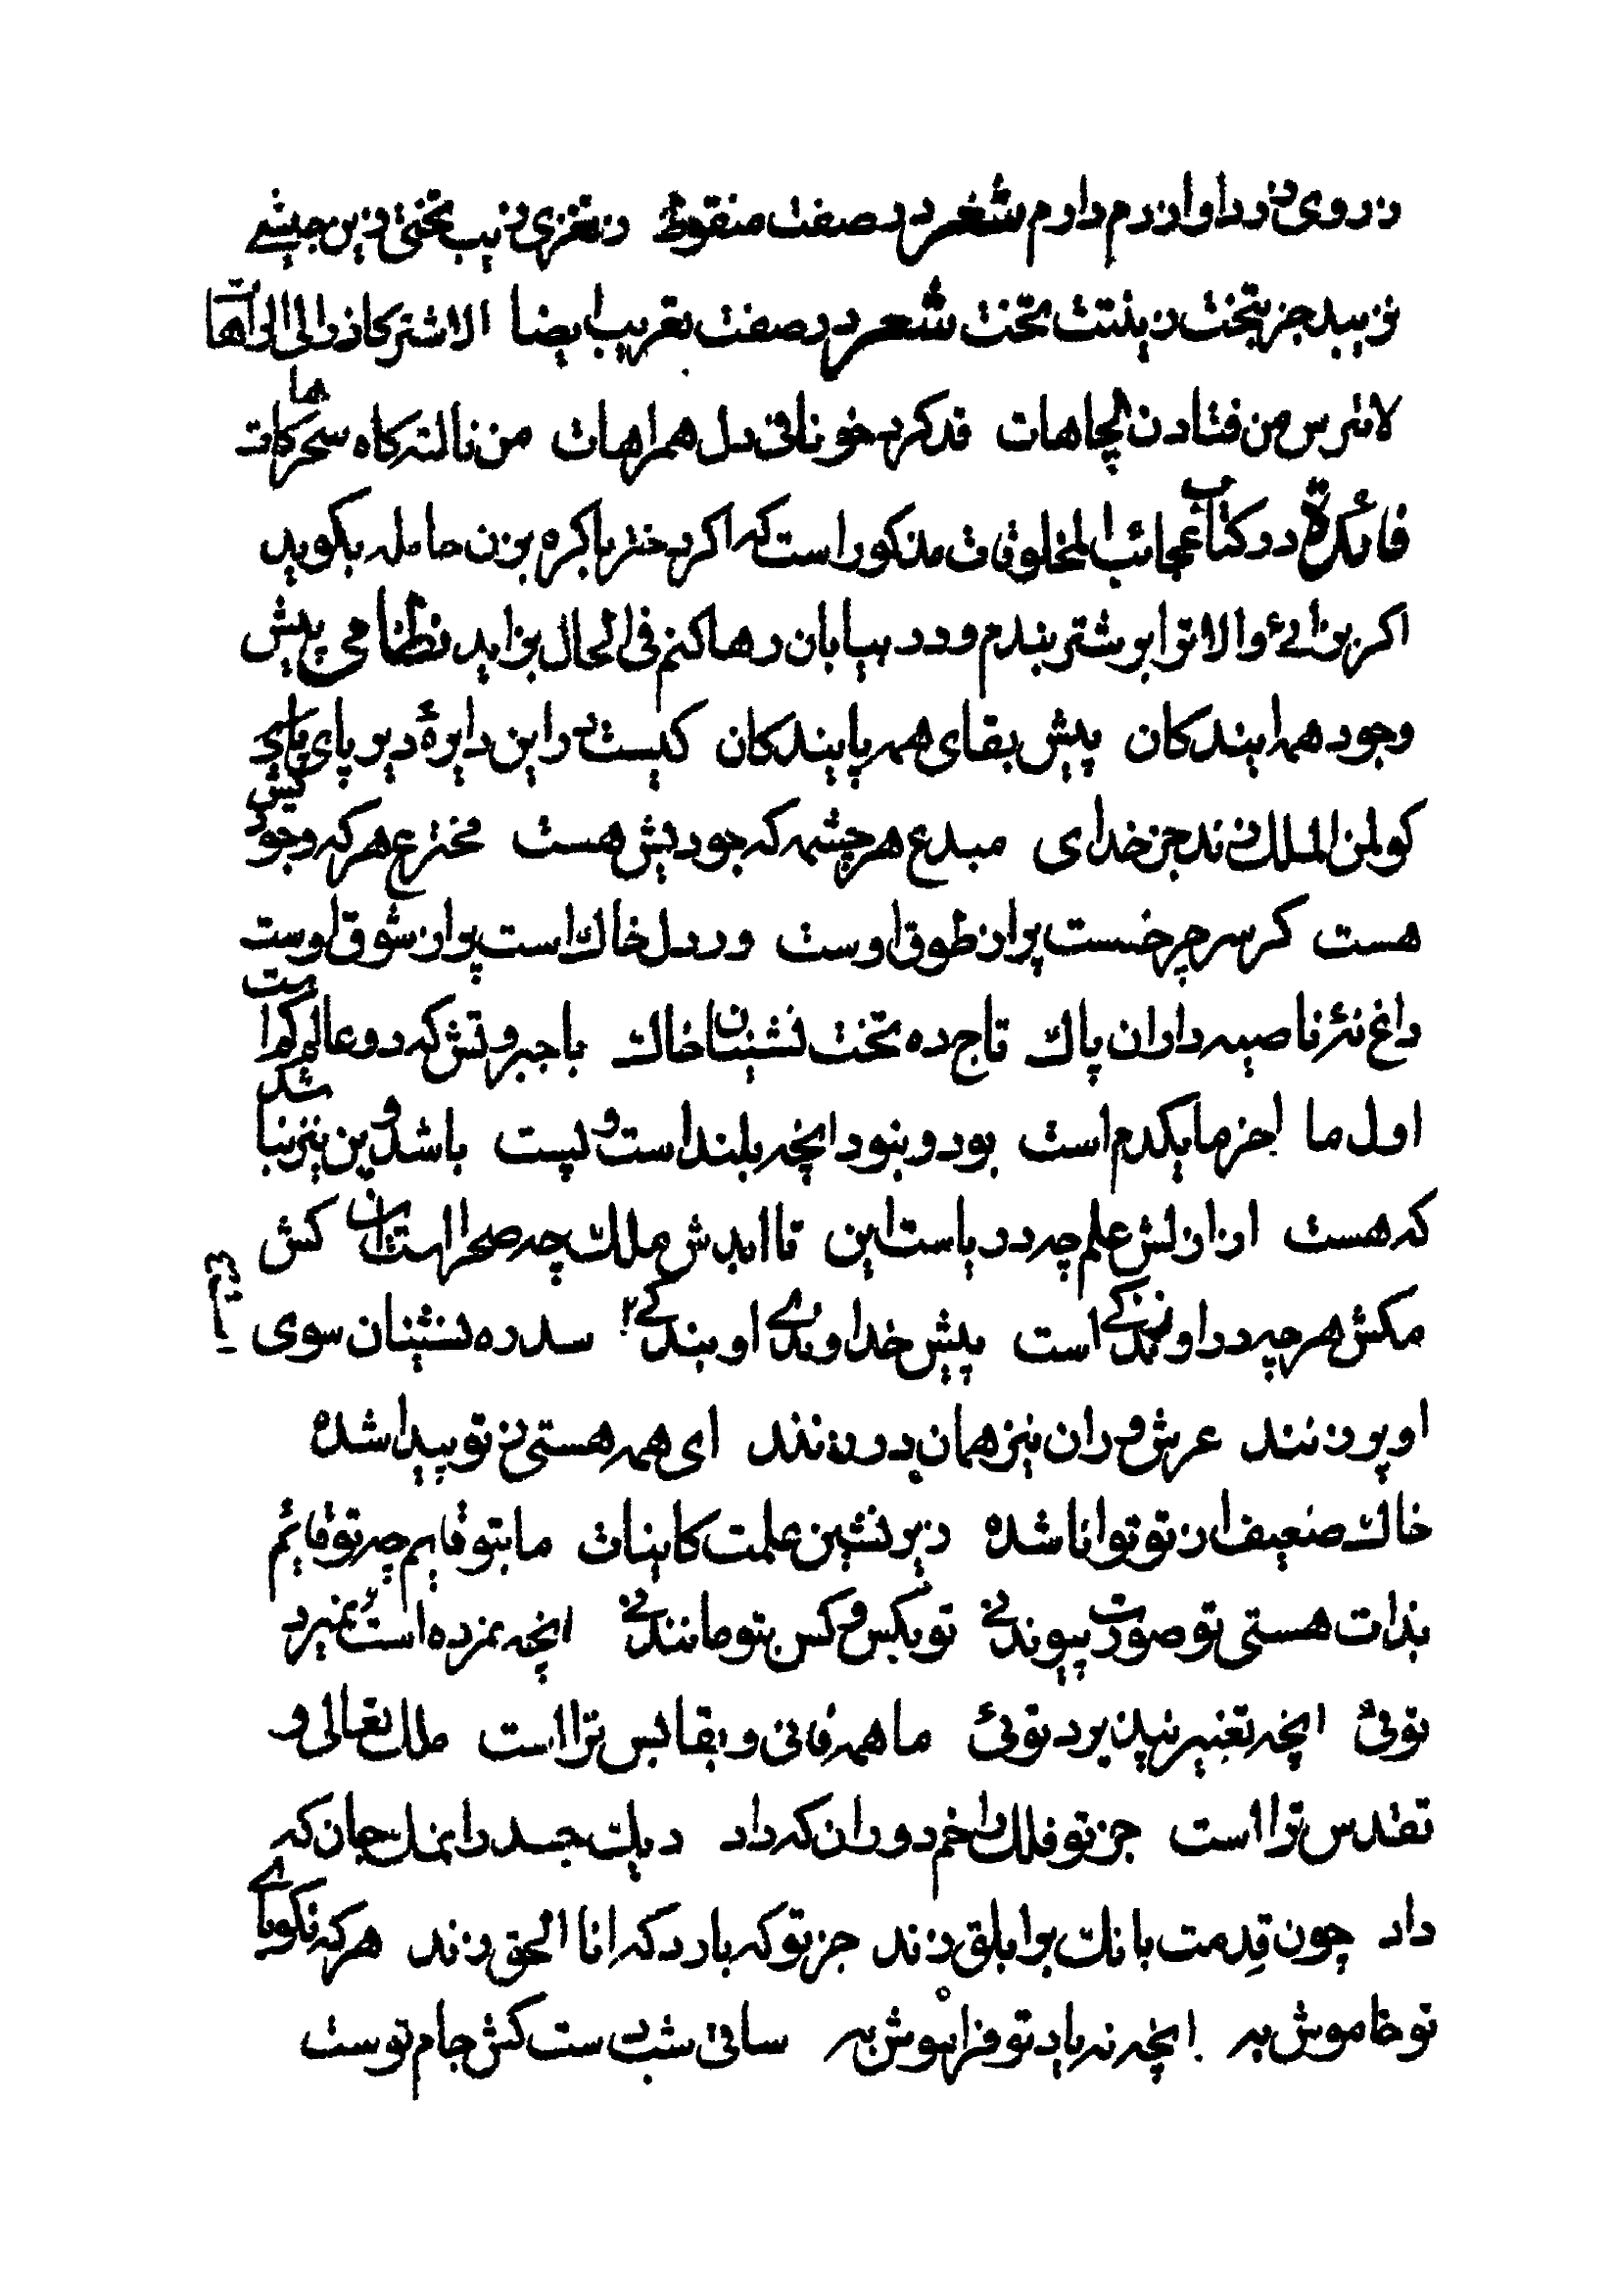 زروی زرد اواز رم دارم شعر در صفت منقوط زنغزی زیب تختی زین جیشی
نزیبد جز بتخت زینتت تخت شعر در صفت تعریب ایضا الاشتر کاز دالی الراهها
لاتترس من فتادن الچاهات قد کرد خونا فی دل همراهات من نالته کاه سحر کاهات
فائدة در کتاب عجائب المخلوقات مذکور است که اگر دختر باکره بزن حامله بگوید
اکر بزائی والا ترا بر شتر بندم و در بیابان رها کنم فی الحال بزاید نظامی پیش
وجود همه ایندکان پیش بقای همه پایندکان کیست درین دایرهٔ دیر پای بای
کو لمن الملك زند جز خدای مبدع هر چشمه که جودیش هست مخترع هر که وجودیش
هست کر سر چرخست پر از طوق اوست ور دل خاك است پر از شوق اوست
داغ نه ناصیه داران پاك تاج ده تخت نشینان خاك با جبروتش که دو عالم کم است
اول ما اخر ما یکدم است بود و نبود انچه بلند است و پست باشد و این نیز نباشد
که هست از ازلش علم چه دریاست این تا ابدش ملك چه صحراست این کش
مکش هرچه در او زندکی است پیش خداوندی او بندکی سدره نشینان سوی
او پر زنند عرش روان نیز همان در زنند ای همه هستی ز تو پیدا شده
خاك ضعیف از تو توانا شده زیر نشین علمت کاینات ما بتو قایم چه تو قایم
بذات هستی تو صورت پیوند نی تو بکس و کس بتو مانند نی انچه نمرده است نمیرد
توئی انچه تغییر نپذیرد توئی ما همه فانی و بقا بس ترا است ملك تعالی و
تقدس ترا است جز تو فلك را خم دوران که داد دیك جسد را نمك جان که
داد چون قدمت بانك بر ابلق زند جز تو که یارد که انا الحق زند هر که نکویای
تو خاموش به انچه نه یاد تو فراموش به ساقی شب دست کش جام توست